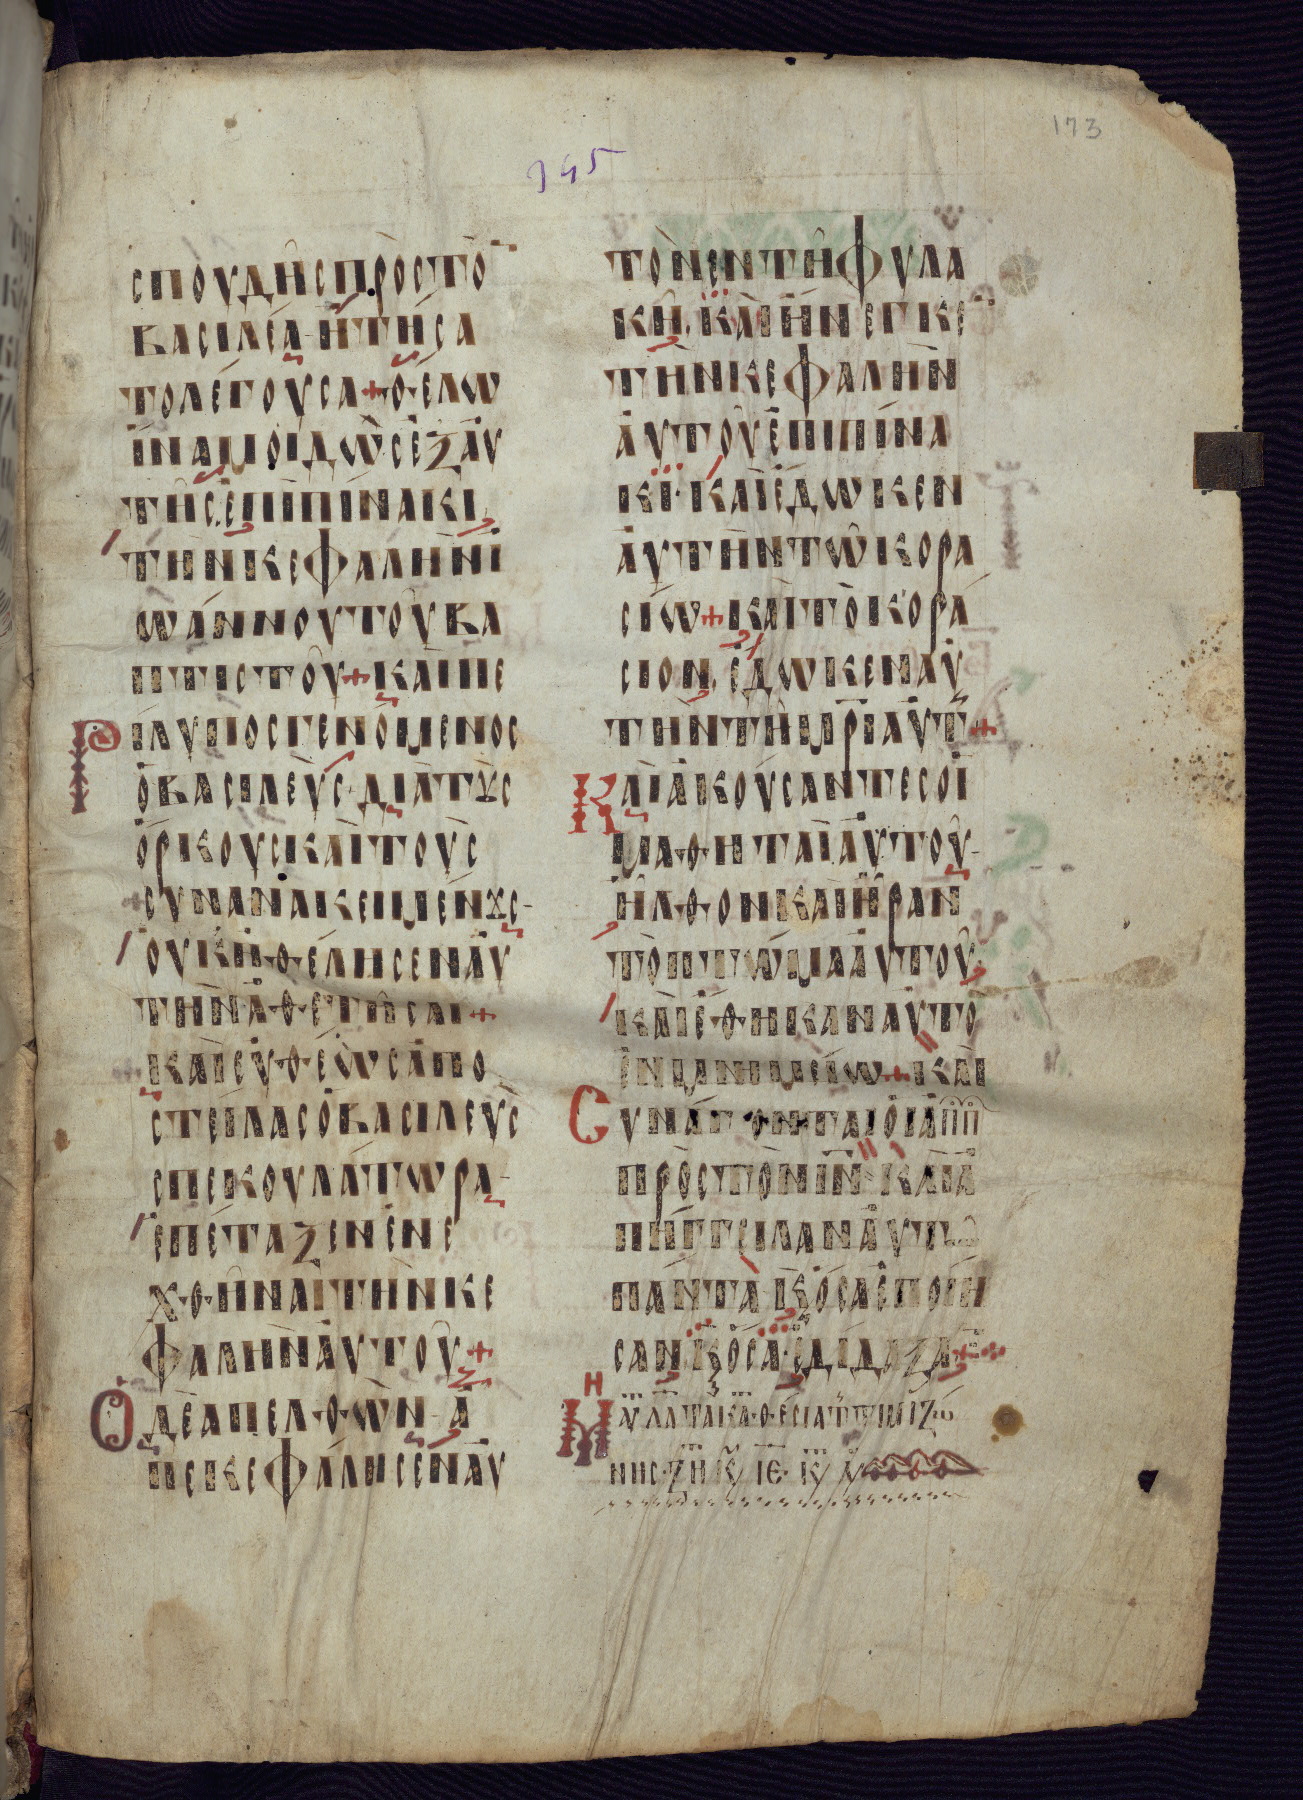 173
σπουδῆς πρὸς τὸ
βασιλέα ἠτήσα
το λέγουσα + θέλω
ἵνα μοι δῶς ἐξ αὐ
τῆς ἐπὶ πίνακι
τὴν κεφαλὴν ἰ
ωάννου τοῦ βα
πτιστοῦ + καὶ πε
Ρίλυπος γενόμενος
ὁ βασιλεὺς διὰ τοὺς
ὅρκους καὶ τοὺς
συνανακειμένους
οὐκ ἠθέλησεν αὐ
τὴν ἀθετῆσαι +
καὶ εὐθέως ἀπο
στείλας ὁ βασιλεὺς
σπεκουλάτωρα
ἐπέταξεν ἐνε
χθῆναι τὴν κε
φαλὴν αὐτοῦ +
Ὁ δὲ ἀπελθὼν ἀ
πεκεφάλησεν αὐ
τὸν ἐν τῇ φυλα
κῇ. καὶ ἤνεγκε
τὴν κεφαλὴν
αὐτοῦ ἐπὶ πίνα
κι. καὶ ἔδωκεν
αὐτὴν τῷ κορα
σίω + καὶ τὸ κορά
σιον ἔδωκεν αὐ
τὴν τῇ μρι αὐτ +
Καὶ ἀκούσαντες οἱ
μαθηταὶ αὐτοῦ
ἦλθον καὶ ἦραν
τὸ πτῶμα αὐτοῦ
καὶ ἔθηκαν αὐτὸ
ἐν μνημείω + καὶ
Συνάγονται οἱ ἀπ
πρὸς τὸν ἰν καὶ ἀ
πήγγειλαν αὐτῶ
πάντα κ ὅσα ἐποίη
σαν κ ὅσα ἐδίδαξαν